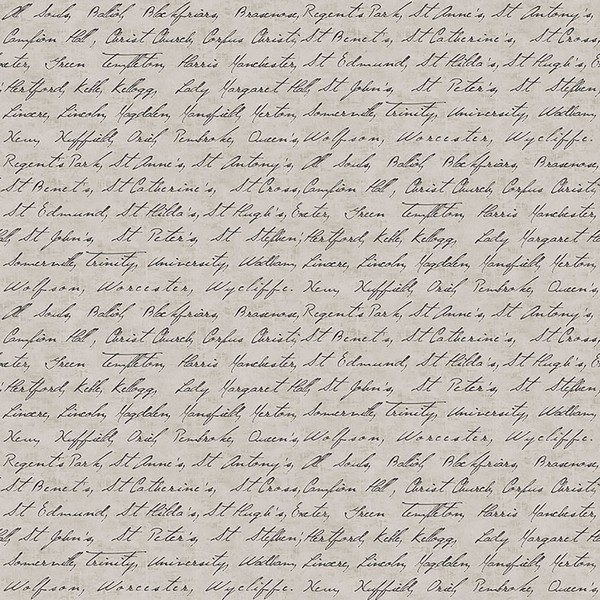 All Souls, Balliol, Blackfriars, Brasenose, Regent's Park, St Anne's, St Antony's,
Campion Hall, Christ Church, Corpus Christi, St Benet's, St Catherine's, St Cross,
Exeter, Green Templeton, Harris Manchester, St Edmund, St Hilda's, St Hugh's, E
Hertford, Keble, Kellogg, Lady Margaret Hall, St John's, St Peter's, St Stephen
Linacre, Lincoln, Magdalen, Mansfield, Merton, Somerville, Trinity, University, Wadham,
New, Nuffield, Oriel, Pembroke, Queen's, Wolfson, Worcester, Wycliffe.
Regent's Park, St Anne's, St Antony's, All Souls, Balliol, Blackfriars, Brasenose,
St Benet's, St Catherine's, St Cross, Campion Hall, Christ Church, Corpus Christi
St Edmund, St Hilda's, St Hugh's, Exeter, Green Templeton, Harris Manchester,
Hall, St John's, St Peter's, St Stephen, Hertford, Keble, Kellogg, Lady Margaret H
Somerville, Trinity, University, Wadham, Linacre, Lincoln, Magdalen, Mansfield, Merton,
Wolfson, Worcester, Wycliffe. New, Nuffield, Oriel, Pembroke, Queen's,
All Souls, Balliol, Blackfriars, Brasenose, Regent's Park, St Anne's, St Antony's,
Campion Hall, Christ Church, Corpus Christi, St Benet's, St Catherine's, St Cross,
Exeter, Green Templeton, Harris Manchester, St Edmund, St Hilda's, St Hugh's, E
Hertford, Keble, Kellogg, Lady Margaret Hall, St John's, St Peter's, St Stephen
Linacre, Lincoln, Magdalen, Mansfield, Merton, Somerville, Trinity, University, Wadham,
New, Nuffield, Oriel, Pembroke, Queen's, Wolfson, Worcester, Wycliffe.
Regent's Park, St Anne's, St Antony's, All Souls, Balliol, Blackfriars, Brasenose,
St Benet's, St Catherine's, St Cross, Campion Hall, Christ Church, Corpus Christi
St Edmund, St Hilda's, St Hugh's, Exeter, Green Templeton, Harris Manchester,
Hall, St John's, St Peter's, St Stephen, Hertford, Keble, Kellogg, Lady Margaret H
Somerville, Trinity, University, Wadham, Linacre, Lincoln, Magdalen, Mansfield, Merton,
Wolfson, Worcester, Wycliffe. New, Nuffield, Oriel, Pembroke, Queen's,